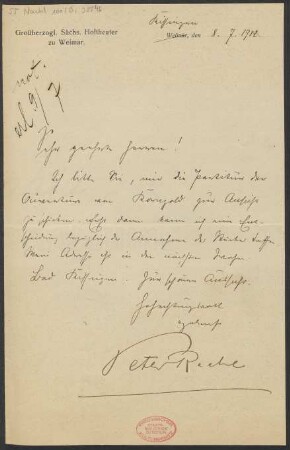 Großherzogl. Sächs. Hoftheater
zu Weimar.
Kissingen
Weimar, den 8. 7. 1912
not.
erl 9/7
Sehr geehrte Herren!
Ich bitte Sie, mir die Partitur der
Ouverture von Korngold zur Ansicht
zu schicken. Erst dann kann ich eine Ent-
scheidung bezüglich der Annahme des Werkes treffen.
Meine Adresse ist in den nächsten Wochen
Bad Kissingen
Hochachtungsvoll
ergebenst
Peter Raabe